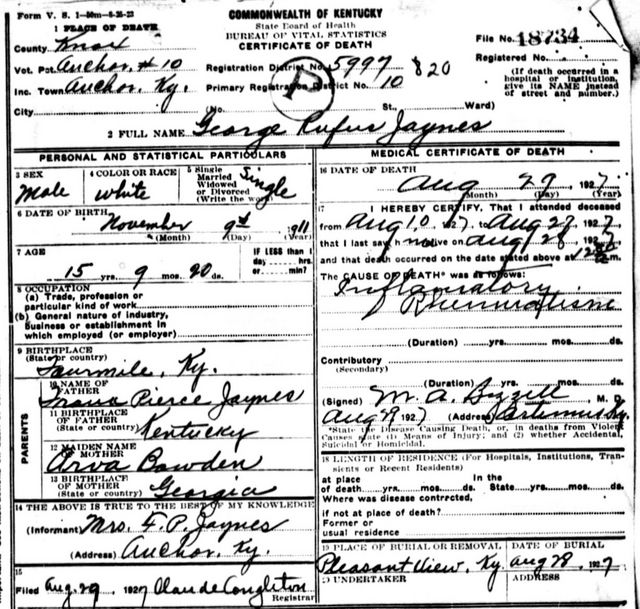 Form V. S. 1-50m-8-26-22
COMMONWEALTH OF KENTUCKY
State Board of Health
BUREAU OF VITAL STATISTICS
CERTIFICATE OF DEATH
1 PLACE OF DEATH
County Knox
Vot. Pct. Anchor #10
Inc. Town Anchor, Ky.
City
File No. 18734
Registered No.
(If death occurred in a hospital or institution, give its NAME instead of street and number.)
Registration District No. 5997 820
Primary Registration District No. 10
P
(No. St., Ward)
2 FULL NAME George Rufus Jaynes
PERSONAL AND STATISTICAL PARTICULARS
3 SEX
Male
4 COLOR OR RACE
White
5 Single
Married
Widowed
or Divorced
(Write the word)
Single
6 DATE OF BIRTH
November 9th 1911
(Month) (Day) (Year)
7 AGE
15 yrs. 9 mos. 20 ds.
IF LESS than 1
day hrs.
or min?
8 OCCUPATION
(a) Trade, profession or
particular kind of work
(b) General nature of industry,
business or establishment in
which employed (or employer)
9 BIRTHPLACE
(State or country)
Fourmile, Ky.
PARENTS
10 NAME OF
FATHER
Pierce Jaynes
11 BIRTHPLACE
OF FATHER
(State or country)
Kentucky
12 MAIDEN NAME
OF MOTHER
Arva Bowden
13 BIRTHPLACE
OF MOTHER
(State or country)
Georgia
14 THE ABOVE IS TRUE TO THE BEST OF MY KNOWLEDGE
(Informant) Mrs. F. P. Jaynes
(Address) Anchor, Ky.
15
Filed Aug. 29, 1927 Claude Congleton
Registrar
MEDICAL CERTIFICATE OF DEATH
16 DATE OF DEATH
Aug 29, 1927
(Month) (Day) (Year)
17 I HEREBY CERTIFY, That I attended deceased
from Aug 10, 1927, to Aug 27, 1927
that I last saw him alive on Aug 28, 1927
and that death occurred on the date stated above at m.
The CAUSE OF DEATH* was as follows:
Inflamatory
Rheumatism
(Duration) yrs. mos. ds.
Contributory
(Secondary)
(Duration) yrs. mos. ds.
(Signed) M. A. M. D.
Aug 29 1927 (Address) Artemus Ky.
*State the Disease Causing Death, or, in deaths from Violent
Causes state (1) Means of Injury; and (2) whether Accidental,
Suicidal or Homicidal.
18 LENGTH OF RESIDENCE (For Hospitals, Institutions, Transients or Recent Residents)
at place In the
of death yrs. mos. ds. State yrs. mos. ds.
Where was disease contrcted,
if not at place of death?
Former or
usual residence
19 PLACE OF BURIAL OR REMOVAL
Pleasant View, Ky.
DATE OF BURIAL
Aug 28, 1927
20 UNDERTAKER
ADDRESS